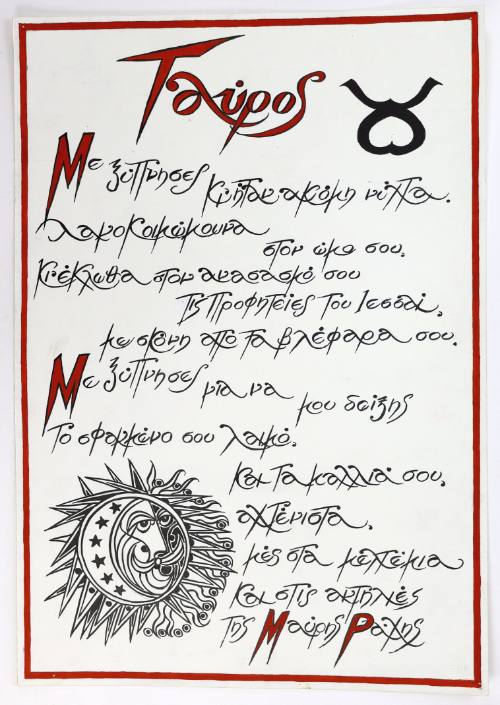 Ταύρος
Με ξύπνησες
κι ήταν ακόμη νύχτα.
στον ώμο σου.
Κι έκλωθα στον ανασασμό σου
τις προφητείες του Ιεσσαί,
με σκόνη από τα βλέφαρα σου.
Με ξύπνησες
για να
μου δείξης
Το σφαγμένο σου λαιμό.
Και τα μαλλιά σου,
αχτένιστα,
μες στα μελτέμια
και στις
της Μαύρης Ράχης